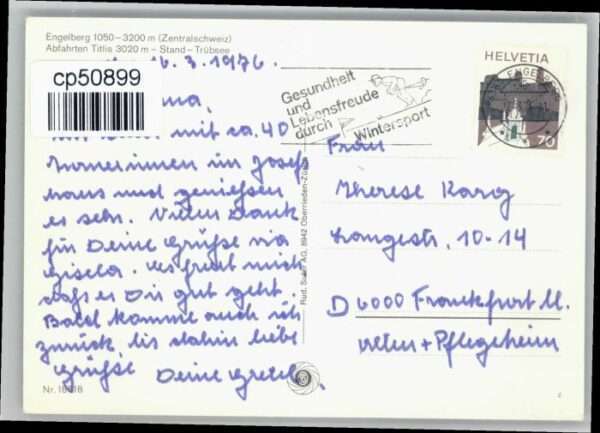 Engelberg 1050–3200 m (Zentralschweiz)
Abfahrten Titlis 3020 m – Stand – Trübsee
16.3.1976.
cp50899
mit ca. 40
Turnerinnen im Josefs
haus und geniessen
es sehr. Vielen Dank
für Deine Grüße via
Gisela. es freut mich
daß es Dir gut geht.
Bald komme auch ich
zurück, bis dahin liebe
Grüße Deine Gretel.
Nr. 18118
Rud. Suter AG, 8942 Oberrieden-Zürich
Gesundheit
und
Lebensfreude
durch
Wintersport
HELVETIA
ENGELBERG
70
Frau
Therese Karg
Langestr. 10-14
D 6000 Frankfurt M.
Alten + Pflegeheim